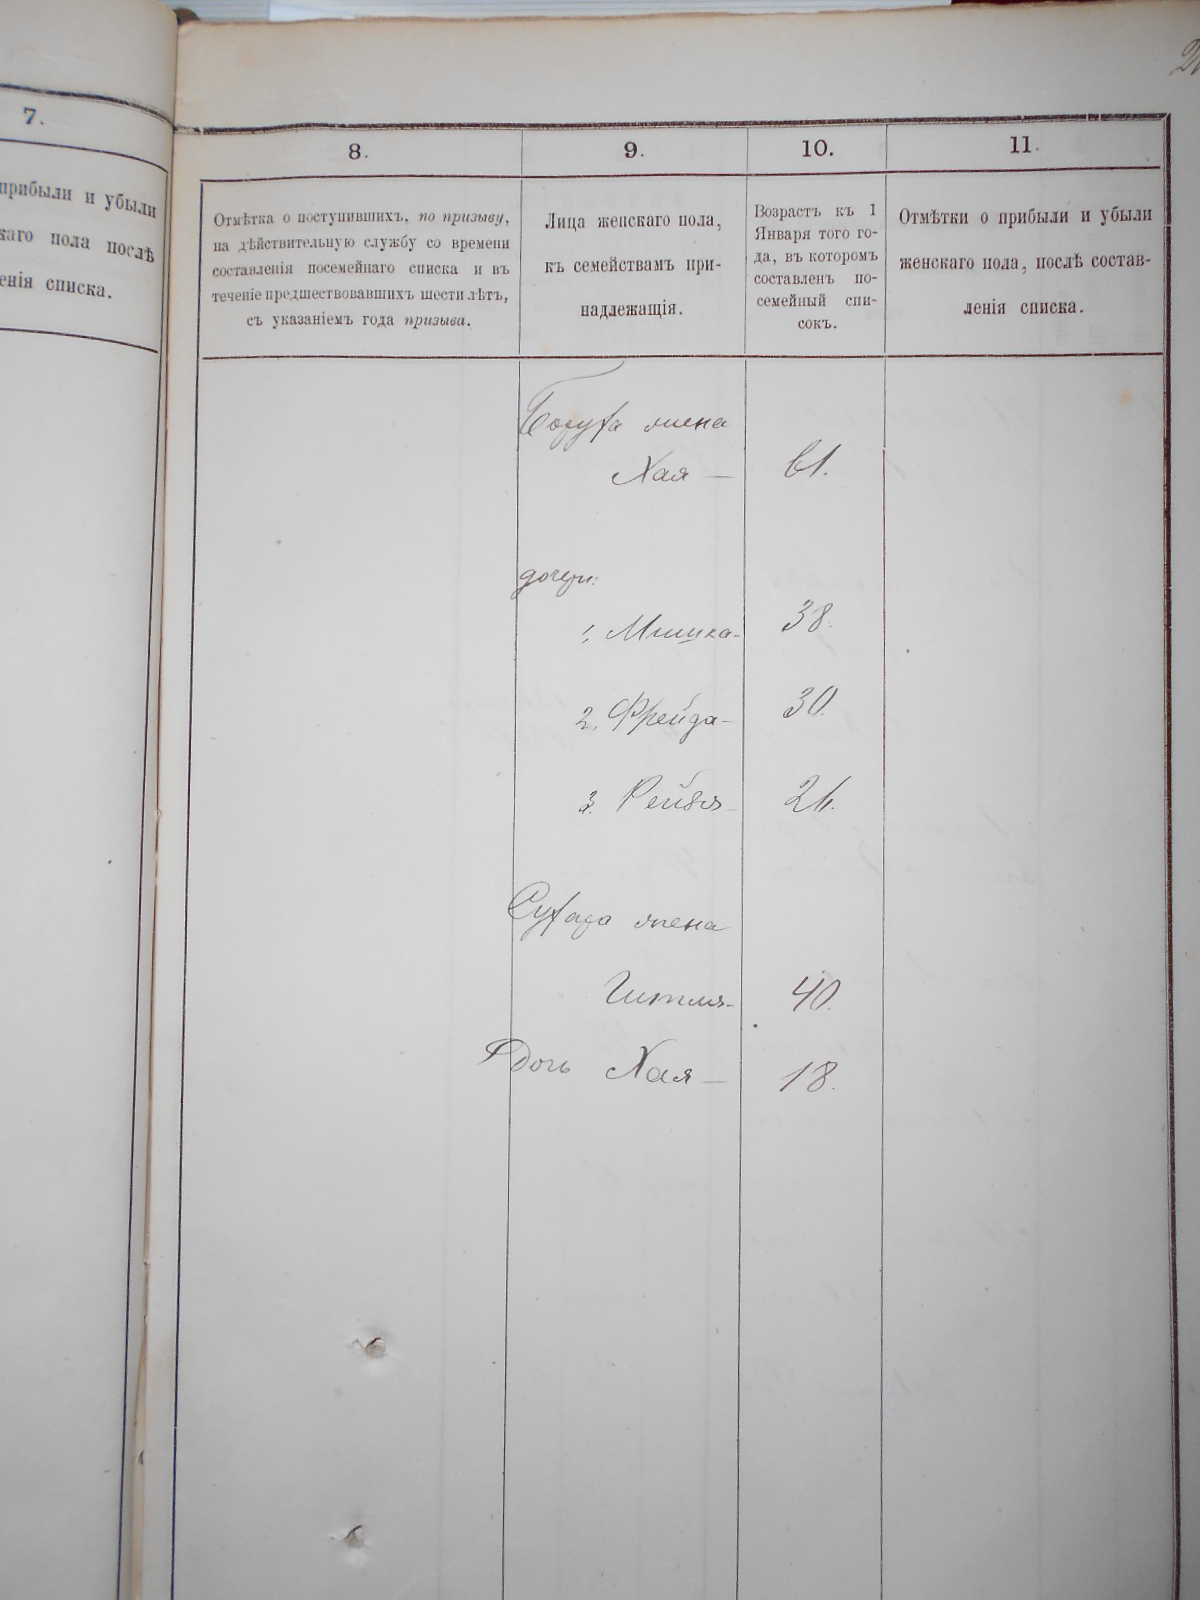 7.
прибыли и убыли
каго пола послѣ
енія списка.
8.
9.
10.
11.
Отмѣтка о поступившихъ, по призыву,
на дѣйствительную службу со времени
составленія посемейнаго списка и въ
теченіе предшествовавшихъ шести лѣтъ,
съ указаніемъ года призыва.
Лица женскаго пола,
къ семействамъ при-
надлежащія.
Возрастъ къ 1
Января того го-
да, въ которомъ
составленъ по-
семейный спи-
сокъ.
Отмѣтки о прибыли и убыли
женскаго пола, послѣ состав-
ленія списка.
Боруха жена
Хая — 61.
дочери:
1. 38.
2. Фрейда — 30.
3. Рейзя — 26.
жена
Гитля — 40.
дочь Хая — 18.